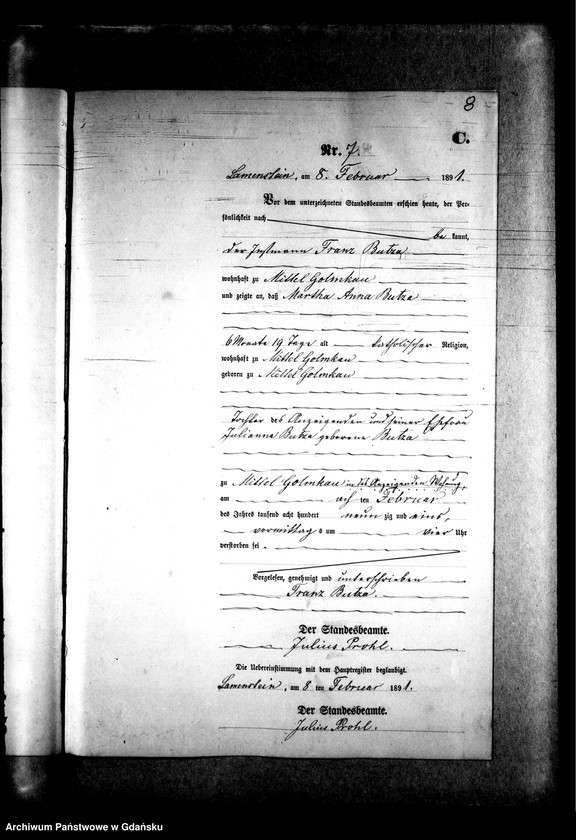 8
C.
Nr. 7.
Lamenstein, am 8. Februar 1891.
Vor dem unterzeichneten Standesbeamten erschien heute, der Per-
sönlichkeit nach
be kannt,
der Instmann Franz Butza
wohnhaft zu Mittel Golmkau
und zeigte an, daß Martha Anna Butza
6 Monate 19 Tage alt katholischer Religion,
wohnhaft zu Mittel Golmkau
geboren zu Mittel Golmkau
Tochter des Anzeigenden und seiner Ehefrau
Julianna Butza geborene Butza
zu Mittel Golmkau in des Anzeigenden Wohnung,
am ach ten Februar
des Jahres tausend acht hundert neun zig und eins,
vormittag s um vier Uhr
verstorben sei.
Vorgelesen, genehmigt und unterschrieben
Franz Butza.
Der Standesbeamte.
Julius Prohl.
Die Uebereinstimmung mit dem Hauptregister beglaubigt.
Lamenstein, am 8 ten Februar 1891.
Der Standesbeamte.
Julius Prohl.
Archiwum Państwowe w Gdańsku